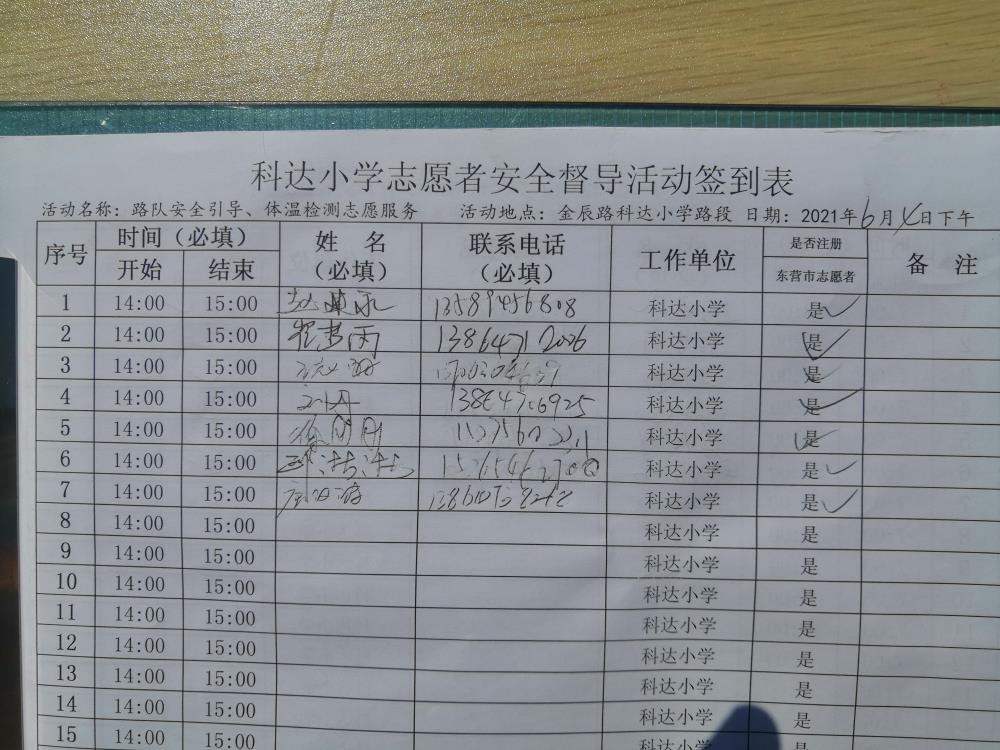 科达小学志愿者安全督导活动签到表
活动名称：路队安全引导、体温检测志愿服务 活动地点：金辰路科达小学路段 日期：2021年6月4日下午
序号 时间（必填） 姓 名（必填） 联系电话（必填） 工作单位 是否注册东营市志愿者 备 注
开始 结束
1 14:00 15:00 13589456808 科达小学 是✓
2 14:00 15:00 13864712006 科达小学 是✓
3 14:00 15:00 科达小学 是✓
4 14:00 15:00 科达小学 是✓
5 14:00 15:00 科达小学 是✓
6 14:00 15:00 科达小学 是✓
7 14:00 15:00 科达小学 是✓
8 14:00 15:00 科达小学 是
9 14:00 15:00 科达小学 是
10 14:00 15:00 科达小学 是
11 14:00 15:00 科达小学 是
12 14:00 15:00 科达小学 是
13 14:00 15:00 科达小学 是
14 14:00 15:00 科达小学 是
15 14:00 15:00 科达小学